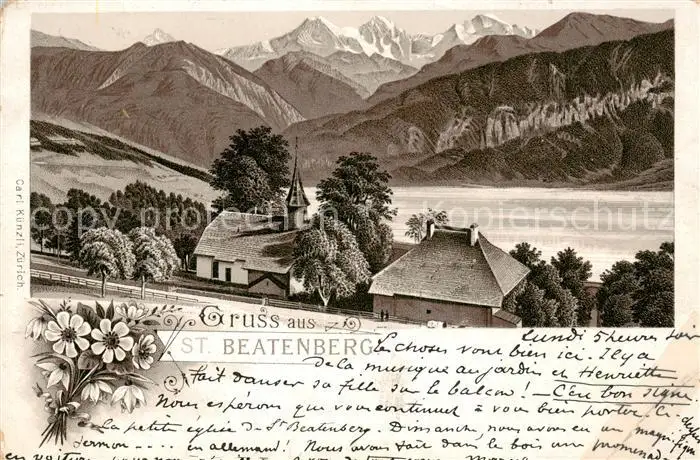 Carl Künzli, Zürich.
Gruss aus
ST. BEATENBERG
Lundi 5 heures soir
Les choses vont bien ici. Il y a
de la musique au jardin et Henriette
fait danser sa fille sur le balcon! — C'est bon signe
Nous espérons que vous continuez à vous bien porter. Ci-
la petite église de St Beatenberg. Dimanche nous avons eu un
sermon .... en allemand! Nous avons fait dans le bois une promenade
en voiture